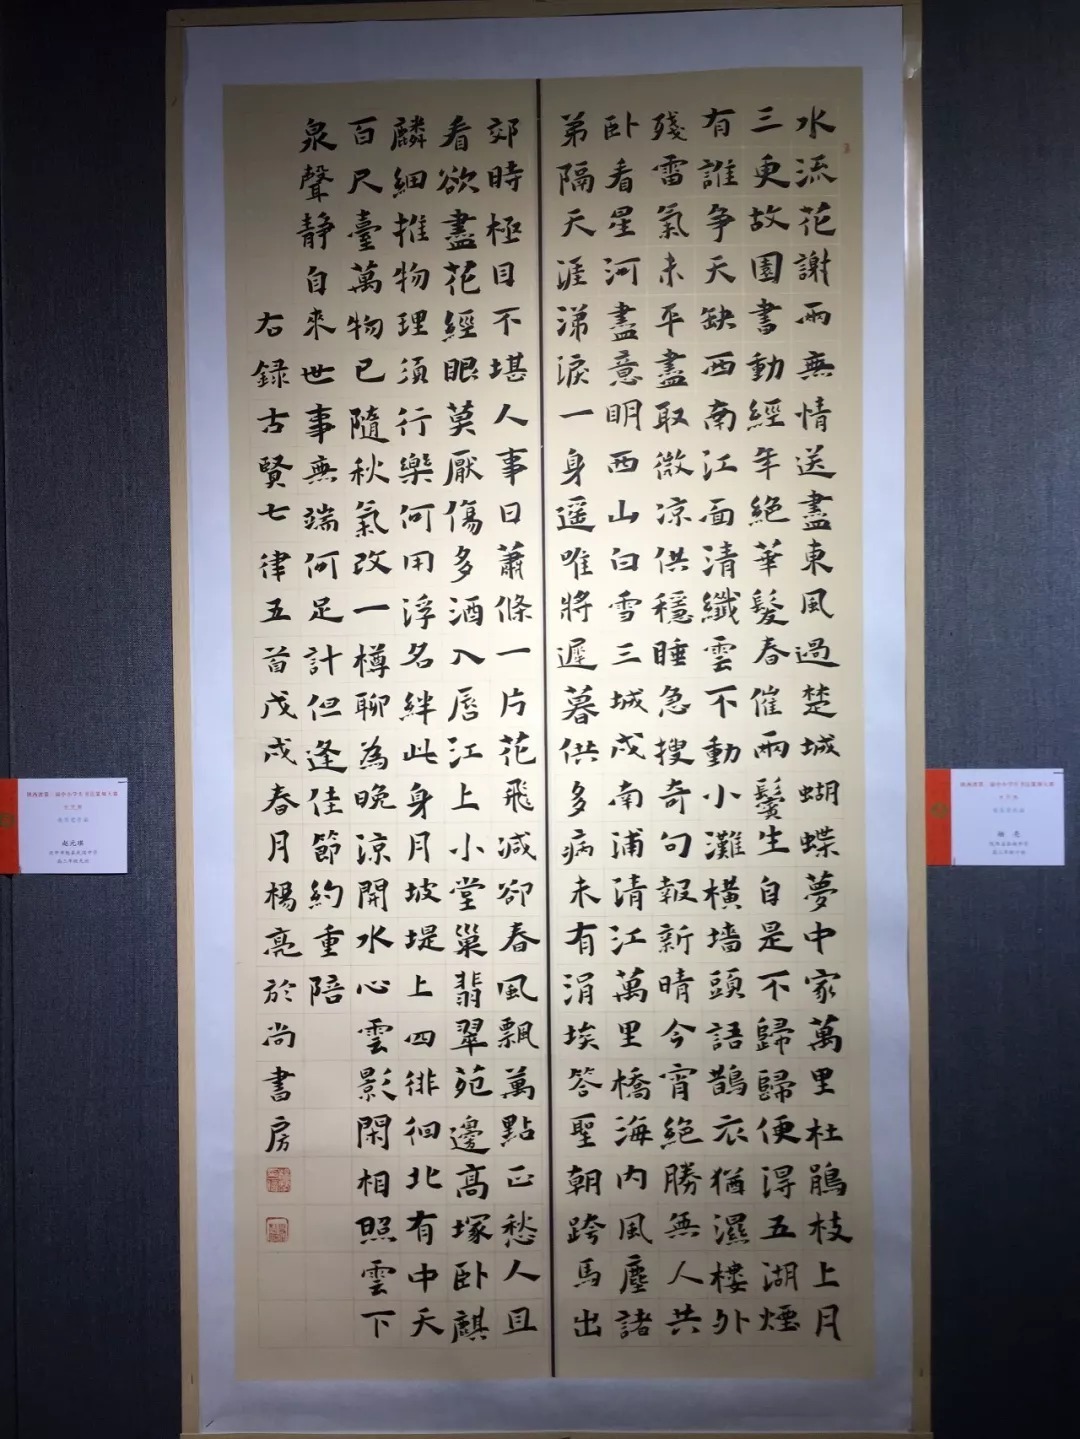 水流花謝雨無情送盡東風過楚城蝴蝶夢中家萬里杜鵑枝上月
三更故園書動經年絕華髮春催兩鬢生自是不歸歸便得五湖煙
有誰爭天缺西南江面清纖雲不動小灘橫墻頭語鵲衣猶濕樓外
殘雷氣未平盡取微凉供穩睡急搜奇句報新晴今宵絕勝無人共
卧看星河盡意明西山白雪三城戍南浦清江萬里橋海内風塵諸
弟隔天涯涕淚一身遥唯將遲暮供多病未有涓埃答聖朝跨馬出
郊時極目不堪人事日蕭條一片花飛減卻春風飄萬點正愁人且
看欲盡花經眼莫厭傷多酒入唇江上小堂巢翡翠苑邊高塚卧麒
麟細推物理須行樂何用浮名絆此身月坡堤上四徘徊北有中天
百尺臺萬物已隨秋氣改一樽聊為晚凉開水心雲影閑相照雲下
泉聲静自來世事無端何足計但逢佳節約重陪
右録古賢七律五首戊戌春月楊亮於尚書房